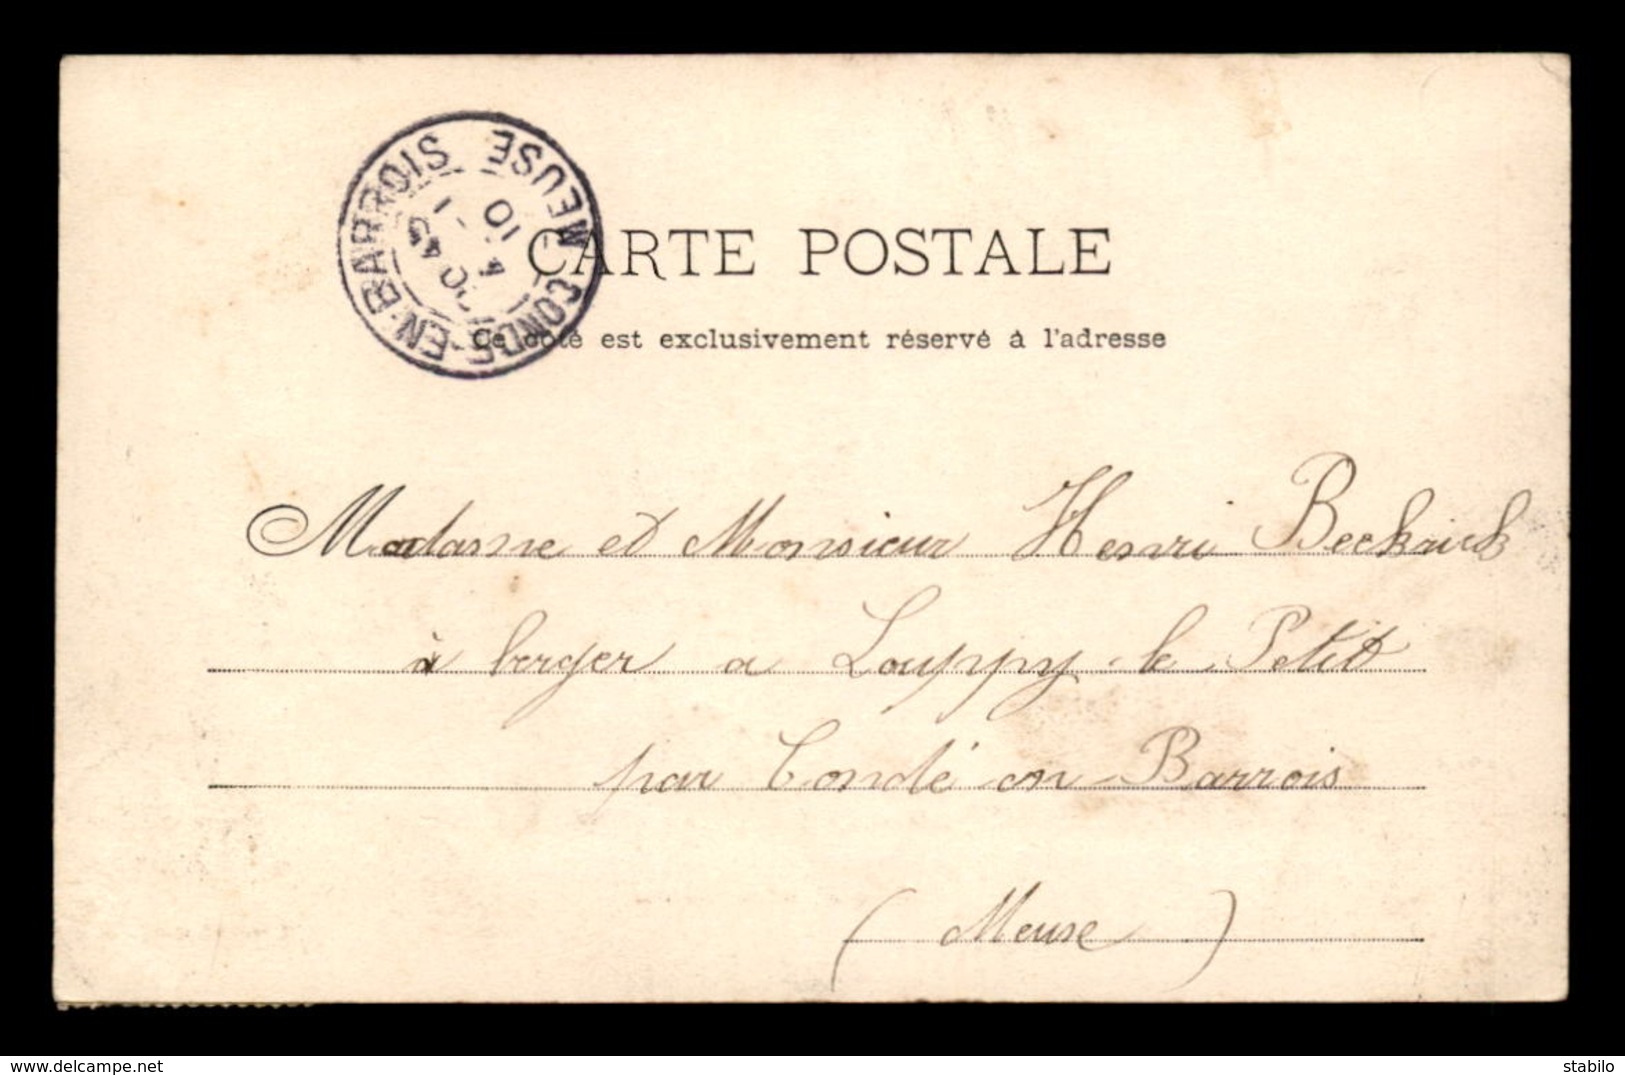 CONDE-EN-BARROIS MEUSE
CARTE POSTALE
Ce côté est exclusivement réservé à l'adresse
Madame et Monsieur Henri
à berger a Louppy-le-Petit
par Condé en-Barrois
(Meuse)
delcampe.net
stabilo